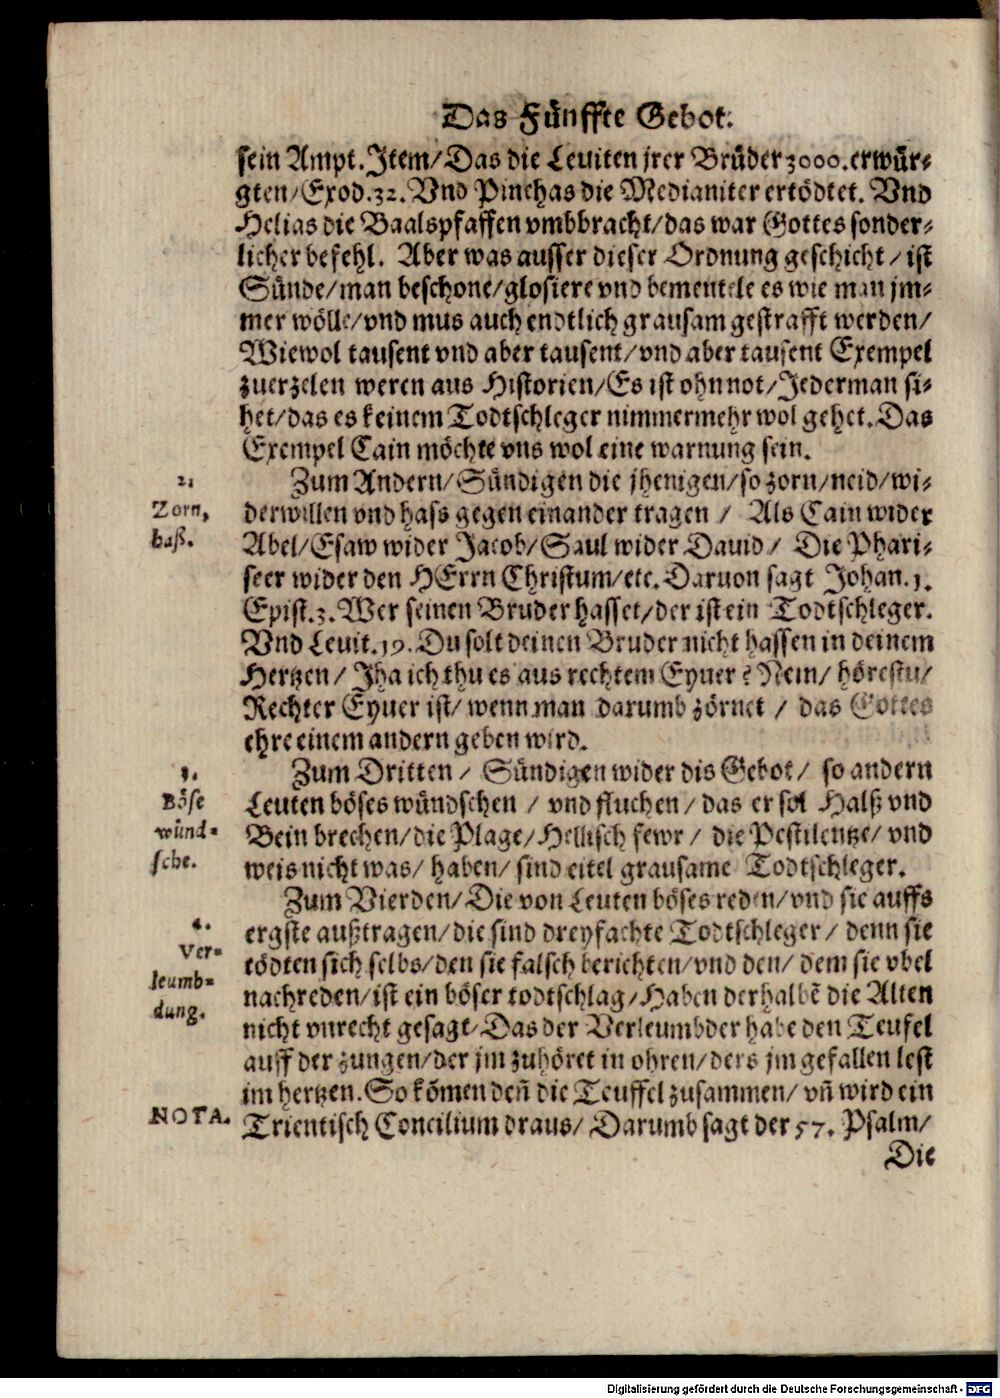 Das Fünffte Gebot.
sein Ampt. Item/Das die Leuiten jrer Brüder 3000. erwür-
gten/Exod. 32. Vnd Pinehas die Medianiter ertödtet. Vnd
Helias die Baalspfaffen vmbbracht/das war Gottes sonder-
licher befehl. Aber was ausser dieser Ordnung geschicht / ist
Sünde/man beschone/glosiere vnd bementele es wie man jm-
mer wölle/vnd mus auch endtlich grausam gestrafft werden/
Wiewol tausent vnd aber tausent/vnd aber tausent Exempel
zuerzelen weren aus Historien/Es ist ohn not/Jederman si-
het/das es keinem Todtschleger nimmermehr wol gehet. Das
Exempel Cain möchte vns wol eine warnung sein.
2.
Zum Andern/Sündigen die jhenigen/so zorn/neid/wi-
Zorn,
derwillen vnd hass gegen einander tragen / Als Cain wider
haß.
Abel/Esaw wider Jacob/Saul wider Dauid / Die Phari-
seer wider den HErrn Christum/etc. Daruon sagt Johan. 1.
Epist. 3. Wer seinen Bruder hasset/der ist ein Todtschleger.
Vnd Leuit. 19. Du solt deinen Bruder nicht hassen in deinem
Hertzen / Jha ich thu es aus rechtem Eyuer? Nein/ hörestu/
Rechter Eyuer ist/ wenn man darumb zörnet / das Gottes
ehre einem andern geben wird.
3.
Zum Dritten / Sündigen wider dis Gebot/ so andern
Böse
Leuten böses wündschen / vnd fluchen / das er sol Halß vnd
wünd-
Bein brechen/die Plage/Hellisch fewr / die Pestilentze/ vnd
sche.
weis nicht was/ haben/ sind eitel grausame Todtschleger.
Zum Vierden/Die von Leuten böses reden/vnd sie auffs
4.
ergste außtragen/die sind dreyfachte Todtschleger / denn sie
Ver-
tödten sich selbs/den sie falsch berichten/vnd den/ dem sie vbel
leumb-
nachreden/ist ein böser todtschlag/Haben derhalbē die Alten
dung.
nicht vnrecht gesagt/Das der Verleumbder habe den Teufel
auff der zungen/der jm zuhöret in ohren/ders jm gefallen lest
im hertzen. So kömen deñ die Teuffel zusammen/ vñ wird ein
NOTA.
Trientisch Concilium draus/ Darumb sagt der 57. Psalm/
Die
Digitalisierung gefördert durch die Deutsche Forschungsgemeinschaft - DFG